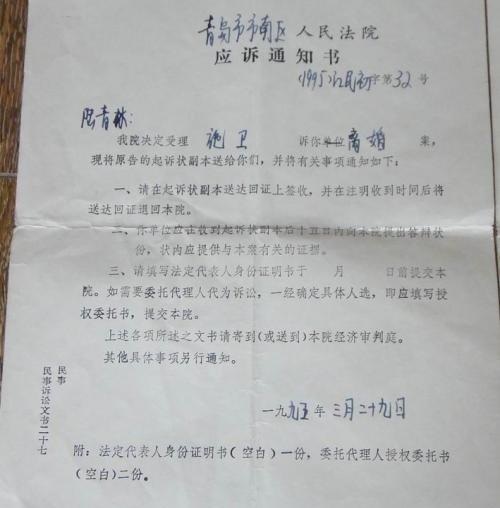 青岛市市南区 人民法院
应诉通知书
(1995)江民初字第32号
陈青林:
我院决定受理 施卫 诉你单位离婚 案,
现将原告的起诉状副本送给你们,并将有关事项通知如下:
一、请在起诉状副本送达回证上签收,并在注明收到时间后将
送达回证退回本院。
二、你单位应在收到起诉状副本后十五日内向本院提出答辩状
份,状内应提供与本案有关的证据。
三、请填写法定代表人身份证明书于 月 日前提交本
院。如需要委托代理人代为诉讼,一经确定具体人选,即应填写授
权委托书,提交本院。
上述各项所述之文书请寄到(或送到)本院经济审判庭。
其他具体事项另行通知。
民事
民事诉讼文书二十七
一九九五年 三月二十九日
附:法定代表人身份证明书(空白)一份,委托代理人授权委托书
(空白)二份。